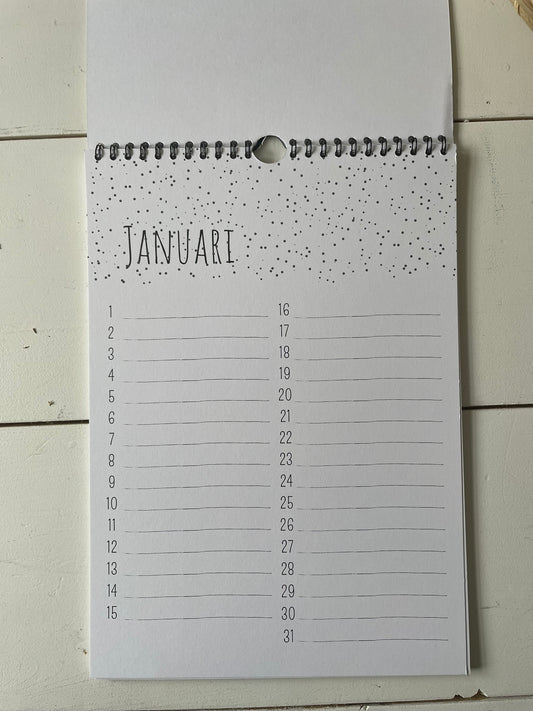 JANUARI
1
2
3
4
5
6
7
8
9
10
11
12
13
14
15
16
17
18
19
20
21
22
23
24
25
26
27
28
29
30
31